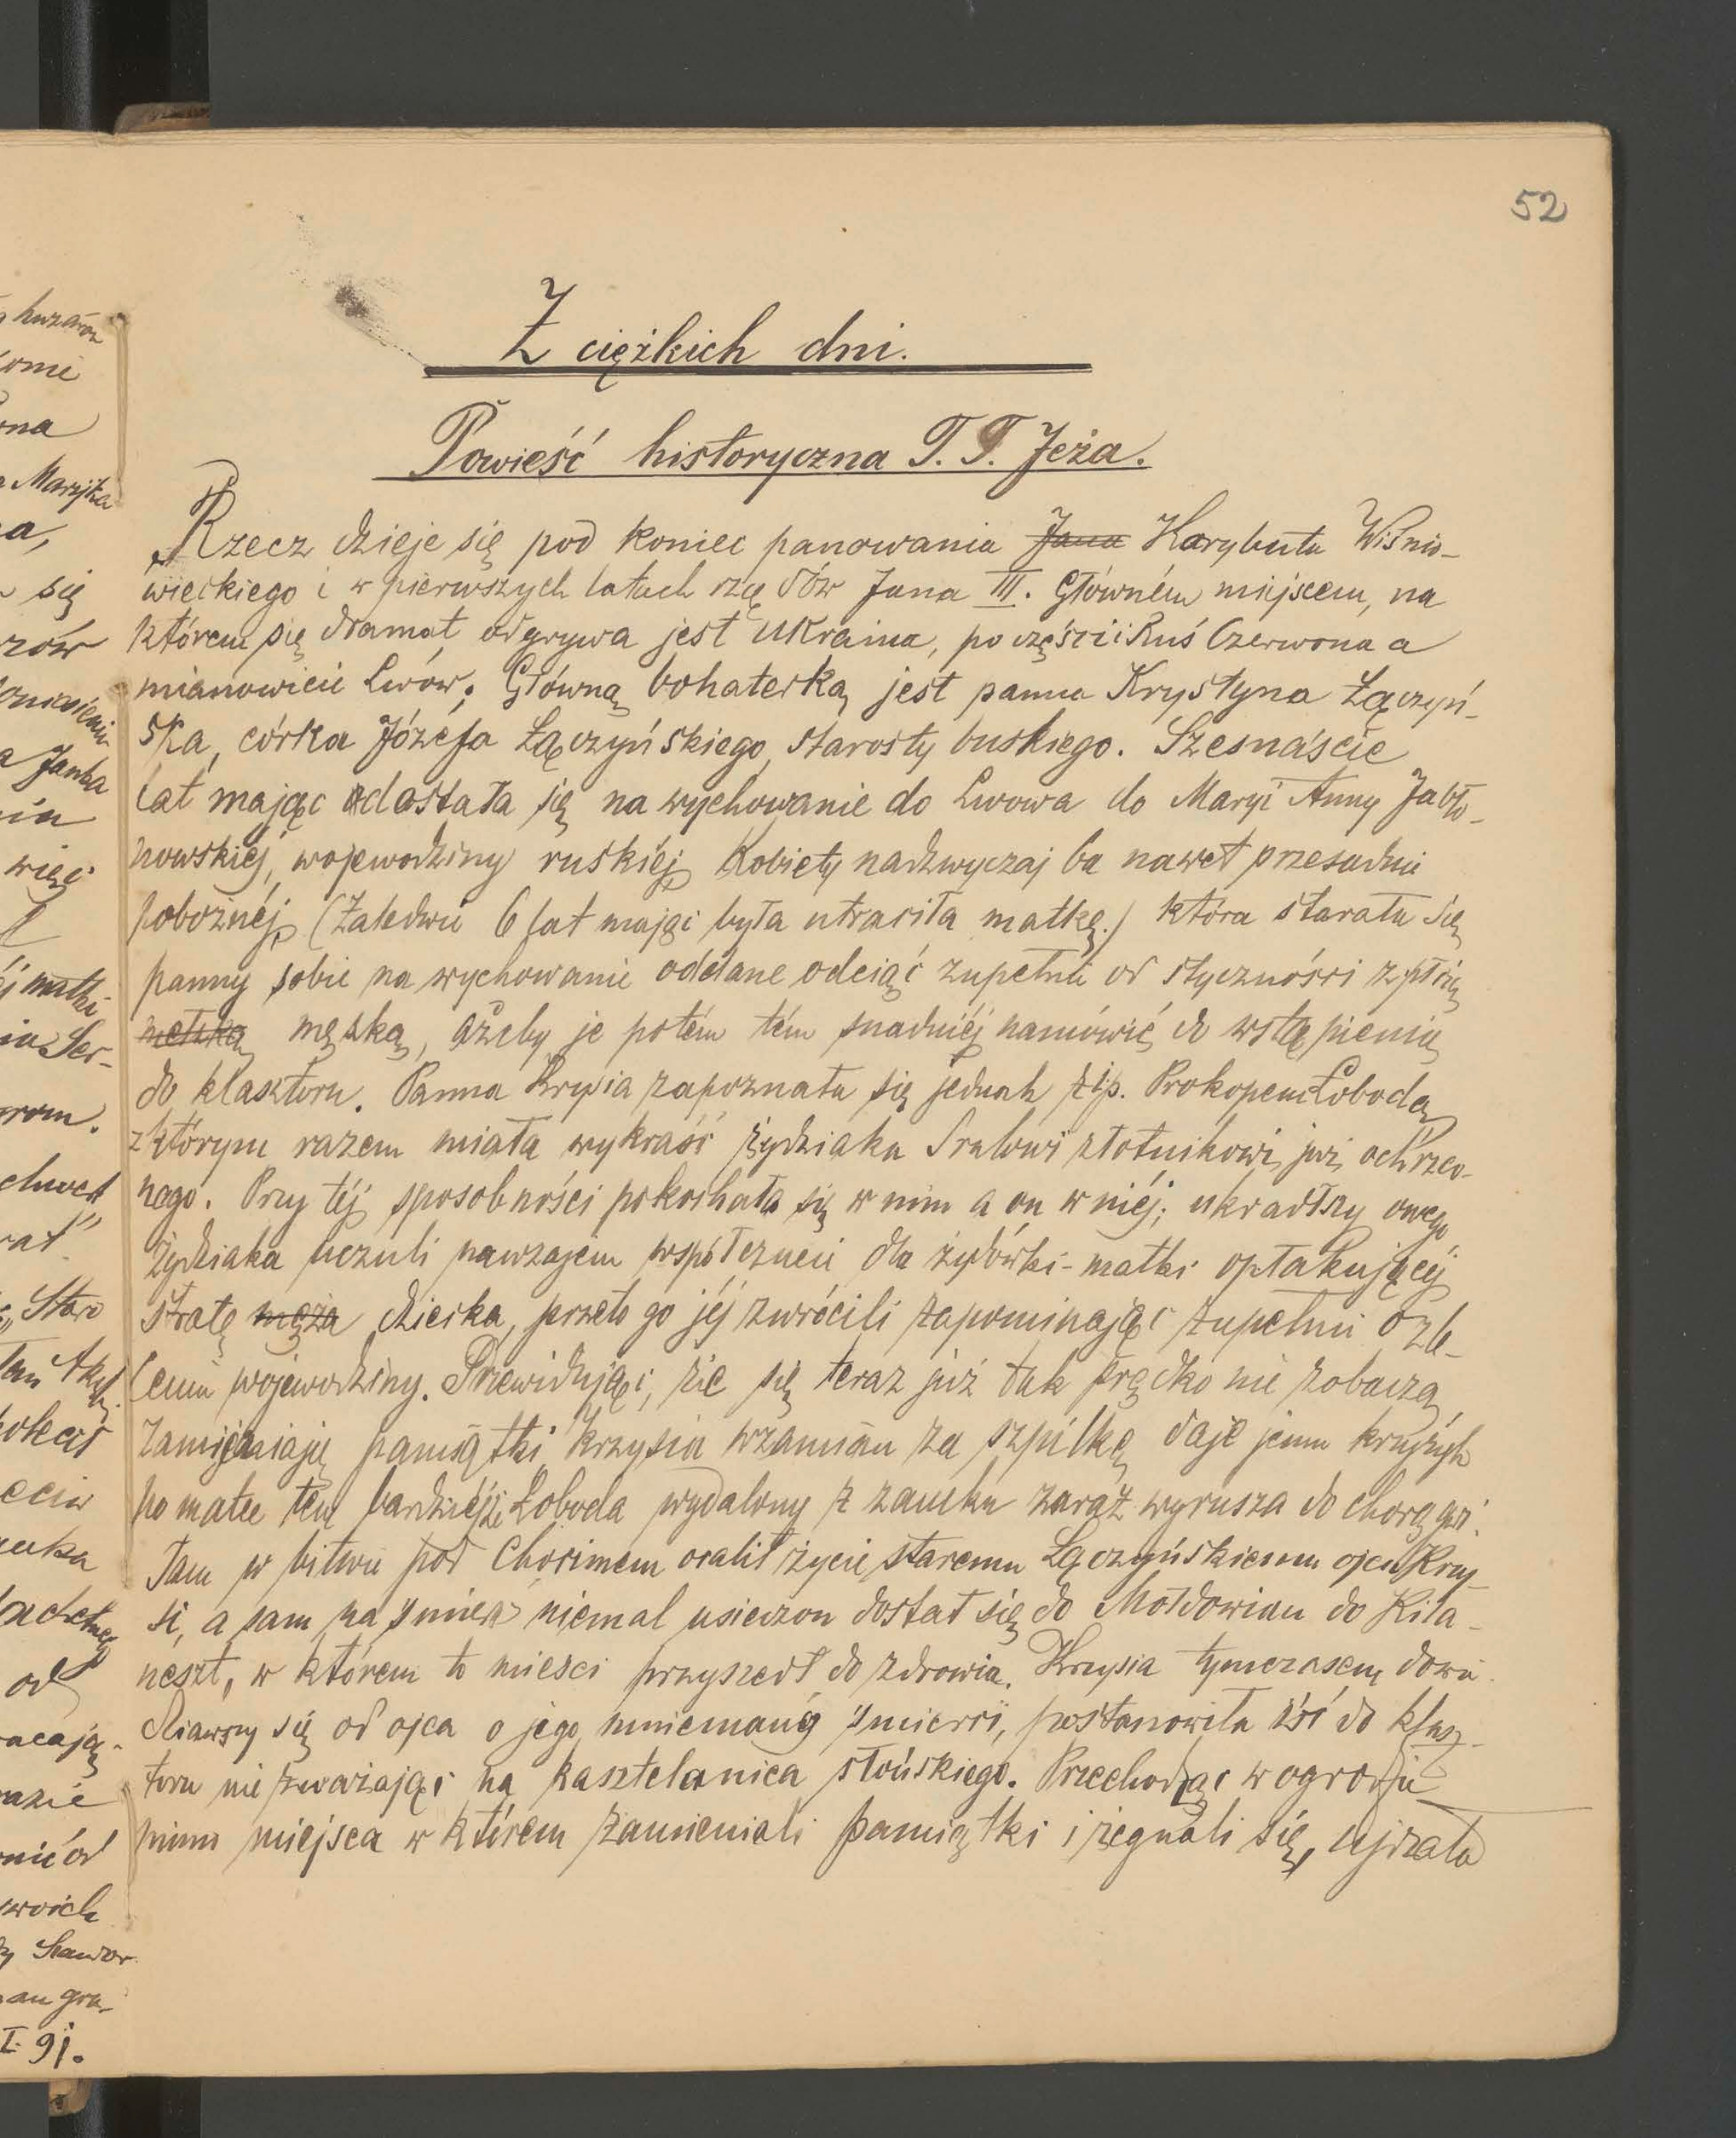 52
Z ciężkich dni.
Powieść historyczna T. T. Jeża.
Rzecz dzieje się pod koniec panowania Jana Korybuta Wiśnio-
wieckiego i w pierwszych latach rzędów Jana III. Główném miejscem, na
którem się dramat odgrywa jest Ukraina, po części i Ruś Czerwona a
mianowicie Lwów. Główną bohaterką jest panna Krystyna Łączyń-
ska, córka Józefa Łączyńskiego, starosty buskiego. Szesnaście
lat mając dostała się na wychowanie do Lwowa do Maryi Anny Jabło-
nowskiéj, wojewodziny ruskiéj kobiety nadzwyczaj ba nawet przesadnie
pobożnéj (Zaledwie 6 lat mając była utraciła matkę.) która starała się
panny sobie na wychowanie oddane odciąć zupełnie od styczności z płcią
męską, ażeby je potém tém snadniéj namówić do wstąpienia
do klasztoru. Panna Krysia zapoznała się jednak z ip. Prokopem Łobodą
z którym razem miała wykraść żydziaka Srulowi złotnikowi, już ochrzco-
nego. Przy téj sposobności pokochała się w nim a on w niéj; ukradłszy owego
żydziaka uczuli nawzajem współczucie dla żydówki-matki opłakującéj
stratę męża dziecka, przeto go jéj zwrócili zapominając zupełnie o zle-
ceniu wojewodziny. Przewidując, że się teraz już tak prędko nie zobaczą
zamieniają pamiątki Krzysia wzamian za szpilkę daje jemu krzyżyk
po matce tem bardziéj że Łoboda wydalony z zamku zaraz wyrusza do chorągwi.
Tam w bitwie pod Chocimem ocalił życie staremu Łączyńskiemu ojcu Krzy-
si, a sam na śmierć niemal usieczon dostał się do Mołdowian do Kila-
neszt, w którem to mieści przyszedł do zdrowia. Krzysia tymczasem dowie-
dziawszy się od ojca o jego mniemanéj śmierci, postanowiła iść do klasz-
toru nie zważając na kasztelanica słońskiego. Przechodząc w ogrodzie
mimo miejsca w którem zamieniali pamiątki i żegnali się, ujrzała